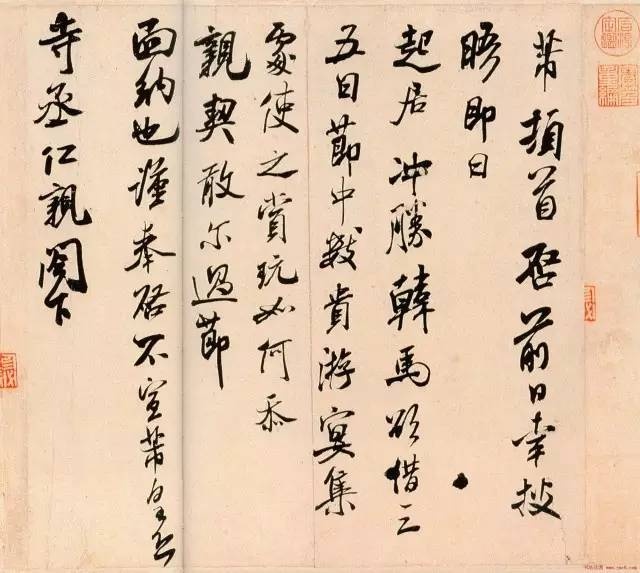 芾頓首啓前日幸披
晤即日
起居冲勝韓馬欲借三
五日節中数貴游宴集
處使之賞玩如何忝
親契敢尔過節
面納也謹奉啓不宣芾皇恐
寺丞仁親閣下